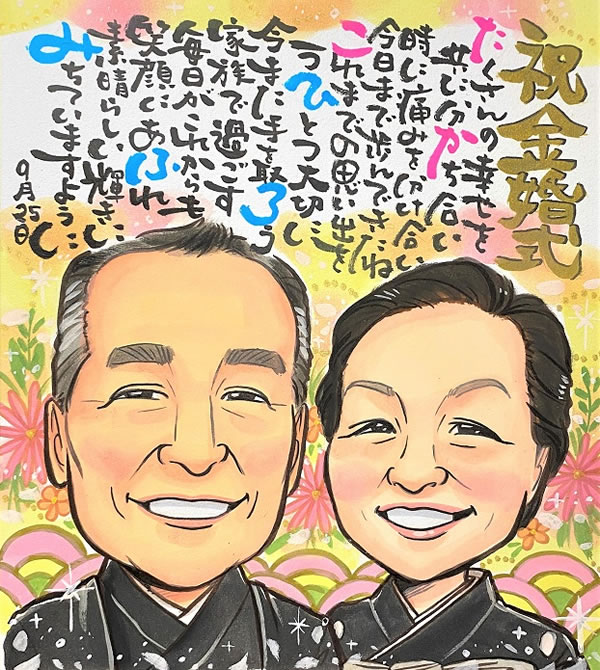 祝金婚式
たくさんの幸せを
共に分かち合い
時に痛みを分け合い
今日まで歩んできたね
これまでの思い出を
一つひとつ大切に
に手を取ろう
家族で過ごす
毎日がこれからも
笑顔にあふれ
素晴らしい輝きに
みちていますように
9月25日